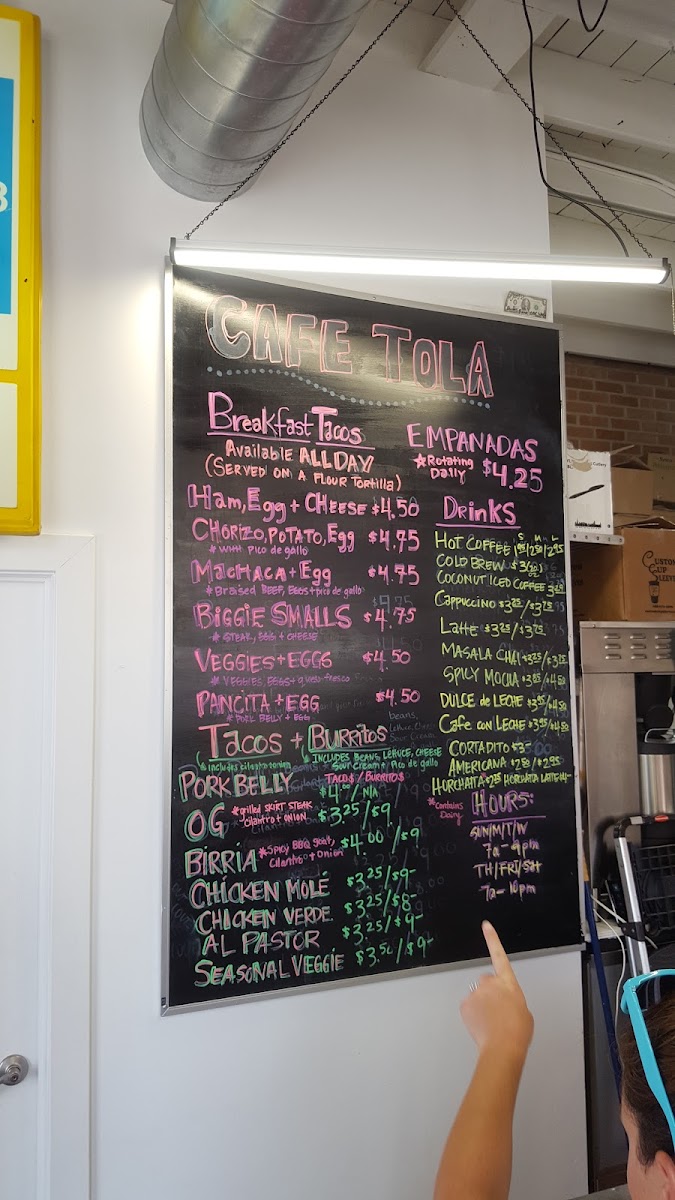 CAFE TOLA
Breakfast Tacos
Available ALL DAY
(SERVED ON A FLOUR TORTILLA)
Ham, Egg + CHEESE $4.50
CHORIZO, POTATO, Egg $4.75
* with pico de gallo
MACHACA + Egg $4.75
* Braised BEEF, EGGS + pico de gallo
BIGGIE SMALLS $4.75
* STEAK, EGG + CHEESE
VEGGIES + EGGS $4.50
* VEGGIES, EGGS + queso fresco
PANCITA + EGG $4.50
* PORK BELLY + EGG
EMPANADAS
*Rotating Daily $4.25
Drinks
S M L
HOT COFFEE 1.95/2.50/2.95
COLD BREW $3
COCONUT ICED COFFEE 3.25
Cappuccino $3.25/$3.75
Latte $3.25/$3.75
MASALA CHAI $3.25/$3.75
SPICY MOCHA $3.85/$4.50
DULCE de LECHE $3.95/$4.50
Cafe con LECHE $3.95/$4.50
CORTADITO $3-
AMERICANA $2.50/$2.95
HORCHATA $2.75 HORCHATA LATTE $4-
Tacos + Burritos
* includes cilantro + onion
* INCLUDES BEANS, LETTUCE, CHEESE
Sour Cream + Pico de gallo
TACO$ / BURRITO$
PORK BELLY $4.00 / N/A
OG *grilled SKIRT STEAK
Cilantro + ONION $3.25/$9-
BIRRIA *Spicy BBQ goat,
Cilantro + Onion $4.00/$9
CHICKEN MOLÉ $3.25/$9-
CHICKEN VERDE $3.25/$8-
AL PASTOR $3.25/$9-
SEASONAL VEGGIE $3.50/$9-
*Contains
Dairy
HOURS:
SUN/M/T/W
7a-9pm
TH/FRI/SAT
7a-10pm